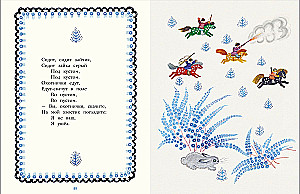 Сидит, сидит зайчик,
Сидит зайка серый
Под кустом,
Под кустом.
Охотнички едут,
Едут-скачут в поле
Во пустом,
Во пустом.
— Вы, охотнички, скачите,
На мой хвостик поглядите:
Я не ваш,
Я ушёл.